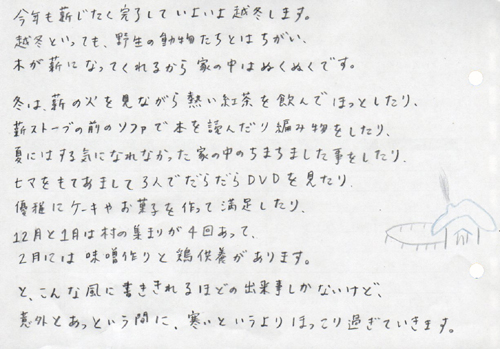 今年も薪じたく完了していよいよ越冬します。
越冬といっても、野生の動物たちとはちがい、
木が薪になってくれるから家の中はぬくぬくです。
冬は、薪の火を見ながら熱い紅茶を飲んでほっとしたり、
薪ストーブの前のソファで本を読んだり編み物をしたり、
夏にはする気になれなかった家の中のちまちました事をしたり、
ヒマをもてあまして3人でだらだらDVDを見たり、
優雅にケーキやお菓子を作って満足したり、
12月と1月は村の集まりが4回あって、
2月には味噌作りと鶏供養があります。
と、こんな風に書ききれるほどの出来事しかないけど、
意外とあっという間に、寒いというよりほっこり過ぎていきます。